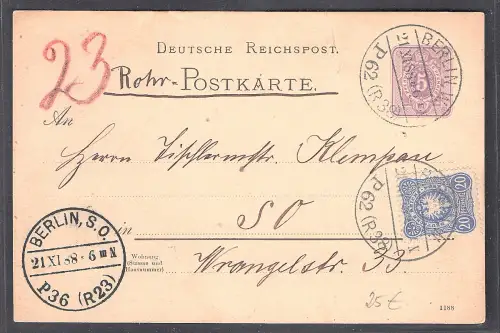 23
DEUTSCHE REICHSPOST.
Rohr-POSTKARTE.
An
Herrn Tischlermstr. Klempau
in SO
Wohnung
(Strasse und
Hausnummer)
Wrangelstr. 33
BERLIN, S.O.
21 XI 88 · 6 m N
P36 (R23)
BERLIN
P 62 (R39)
5
P 62 (R39)
20
20
25 €
1188